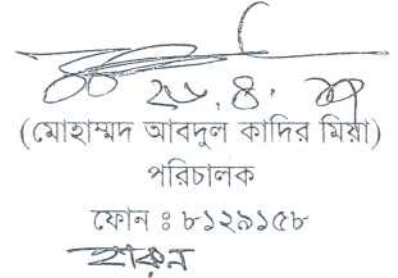 (মোহাম্মদ আবদুল কাদির মিয়া)
পরিচালক
ফোন ঃ ৮১২৯১৫৮
হারুন